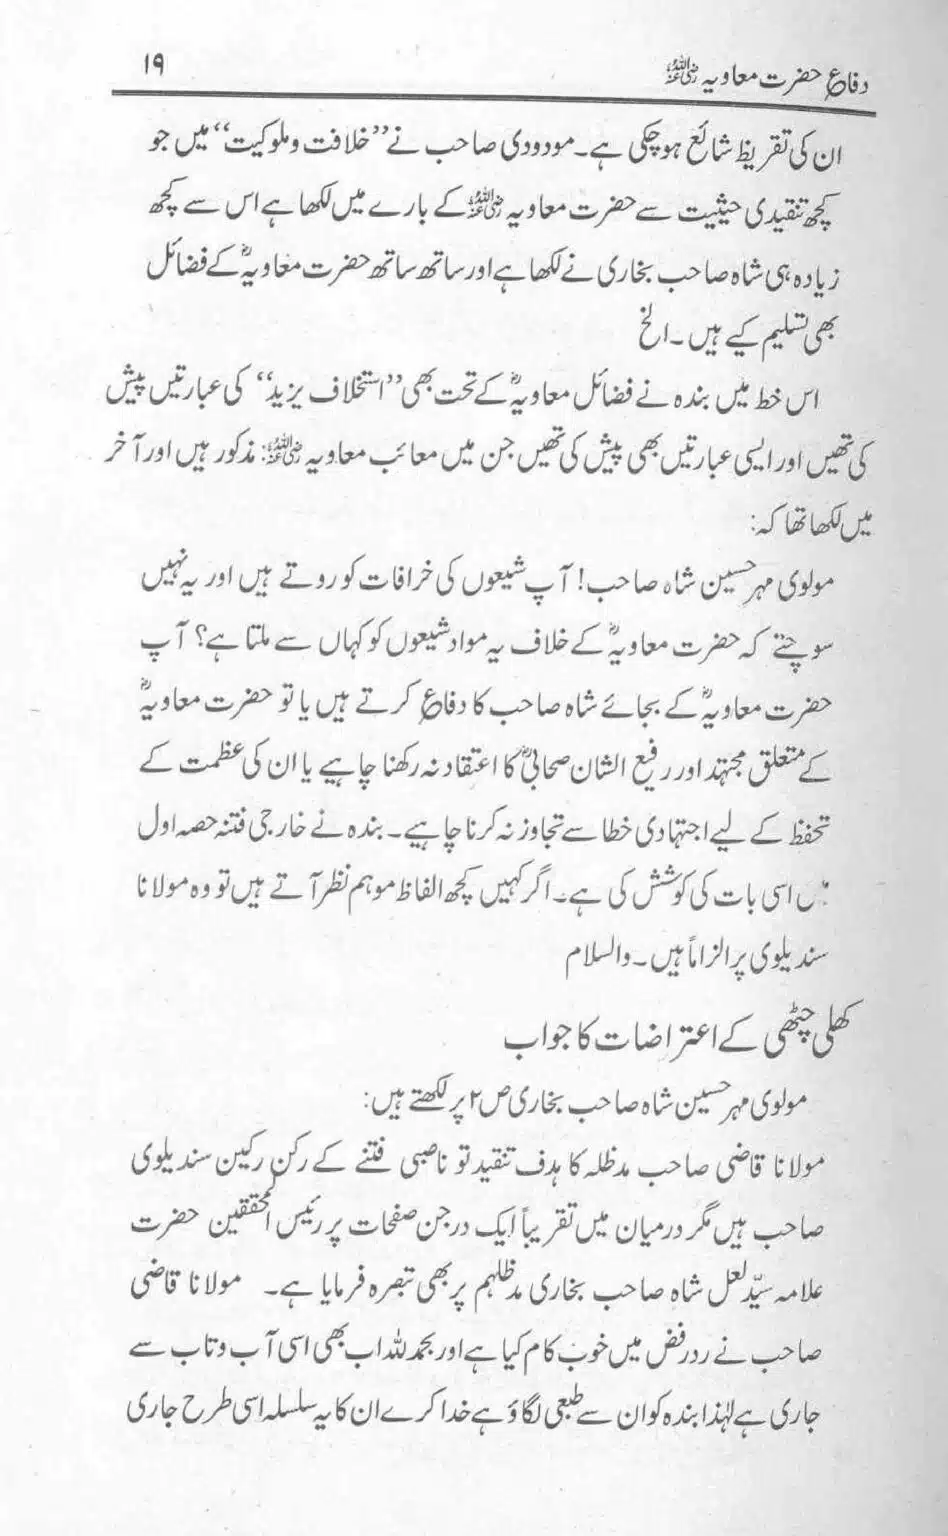 دفاع حضرت معاویہ رضی اللہ عنہ ۱۹
ان کی تقریظ شائع ہوچکی ہے۔ مودودی صاحب نے ’’خلافت وملوکیت‘‘ میں جو
کچھ تنقیدی حیثیت سے حضرت معاویہ رضی اللہ عنہ کے بارے میں لکھا ہے اس سے کچھ
زیادہ ہی شاہ صاحب بخاری نے لکھا ہے اور ساتھ ساتھ حضرت معاویہؓ کے فضائل
بھی تسلیم کیے ہیں۔ الخ
اس خط میں بندہ نے فضائل معاویہؓ کے تحت بھی ’’استخلاف یزید‘‘ کی عبارتیں پیش
کی تھیں اور ایسی عبارتیں بھی پیش کی تھیں جن میں معائب معاویہ رضی اللہ عنہ مذکور ہیں اور آخر
میں لکھا تھا کہ:
مولوی مہر حسین شاہ صاحب! آپ شیعوں کی خرافات کو روتے ہیں اور یہ نہیں
سوچتے کہ حضرت معاویہؓ کے خلاف یہ مواد شیعوں کو کہاں سے ملتا ہے؟ آپ
حضرت معاویہؓ کے بجائے شاہ صاحب کا دفاع کرتے ہیں یا تو حضرت معاویہؓ
کے متعلق مجتہد اور رفیع الشان صحابیؓ کا اعتقاد نہ رکھنا چاہیے یا ان کی عظمت کے
تحفظ کے لیے اجتہادی خطا سے تجاوز نہ کرنا چاہیے۔ بندہ نے خارجی فتنہ حصہ اول
میں اسی بات کی کوشش کی ہے۔ اگر کہیں کچھ الفاظ موہم نظر آتے ہیں تو وہ مولانا
سندیلوی پر الزاماً ہیں۔ والسلام
کھلی چٹھی کے اعتراضات کا جواب
مولوی مہر حسین شاہ صاحب بخاری ص ۲ پر لکھتے ہیں:
مولانا قاضی صاحب مدظلہ کا ہدف تنقید تو ناصبی فتنے کے رکنِ رکین سندیلوی
صاحب ہیں مگر درمیان میں تقریباً ایک درجن صفحات پر رئیس المحققین حضرت
علامہ سیّد لعل شاہ صاحب بخاری مدظلہم پر بھی تبصرہ فرمایا ہے۔ مولانا قاضی
صاحب نے ردِ رفض میں خوب کام کیا ہے اور بحمدللہ اب بھی اسی آب وتاب سے
جاری ہے لہٰذا بندہ کو ان سے طبعی لگاؤ ہے خدا کرے ان کا یہ سلسلہ اسی طرح جاری